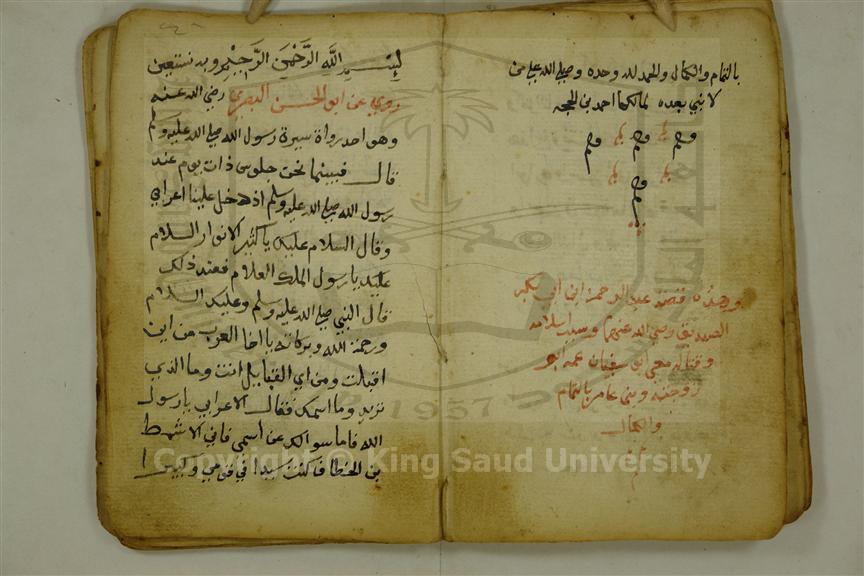 بالتمام والكمال والحمد لله وحده وصلي الله علي من
لا نبي بعده لمالكها احمد بن
وهذه قصة عبد الرحمن ابن ابي بكر
الصديق رضي الله عنهما وسبب اسلامه
وقتاله مع ابي سفيان عمه ابو
زوجته وبني عامر بالتمام
والكمال
بسم الله الرحمن الرحيم وبه نستعين
روي عن ابو الحسن البكري رضي الله عنه
وهو احد رواة سيرة رسول الله صلي الله عليه ولم
قال فبينما نحن جلوس ذات يوم عند
رسول الله صلي الله عليه وسلم اذ دخل علينا اعرابي
وقال السلام عليك يا كثير الانوار السلام
عليك يا رسول الملك العلام فعند ذلك
قال النبي صلي الله عليه وسلم وعليك السلام
ورحمة الله وبركاته يا اخا العرب من اين
اقبلت ومن اي القبايل انت وما الذي
تريد وما اسمك فقال الاعرابي يا رسول
الله فاما سوالك عن اسمي فاني الاشمط
بن الخطاف كنت سيدا في قومي وكبيرا
1957
Copyright © King Saud University